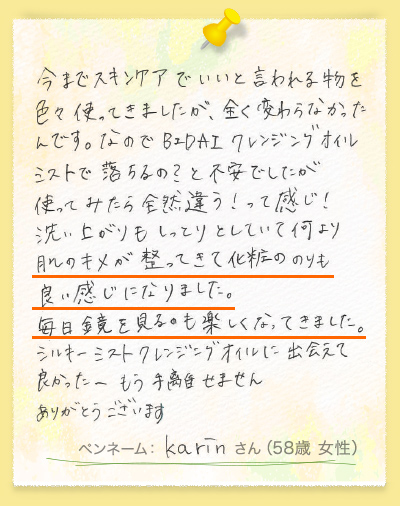 今までスキンケアでいいと言われる物を
色々使ってきましたが、全く変わらなかった
んです。なのでBIDAIクレンジングオイル
ミストで落ちるの?と不安でしたが
使ってみたら全然違う!って感じ!
洗い上がりもしっとりとしていて何より
肌のキメが整ってきて化粧ののりも
良い感じになりました。
毎日鏡を見るのも楽しくなってきました。
シルキーミストクレンジングオイルに出会えて
良かった〜もう手離せません
ありがとうございます
ペンネーム: karinさん(58歳 女性)